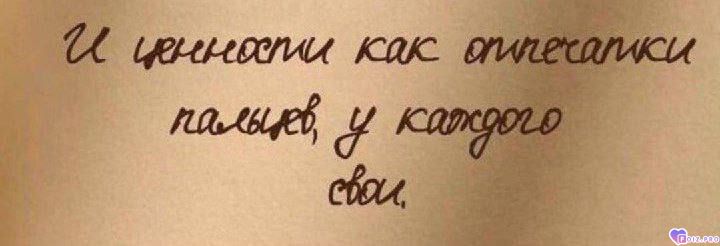 И ценности как отпечатки
пальцев, у каждого
свои.
PDIZ.PRO